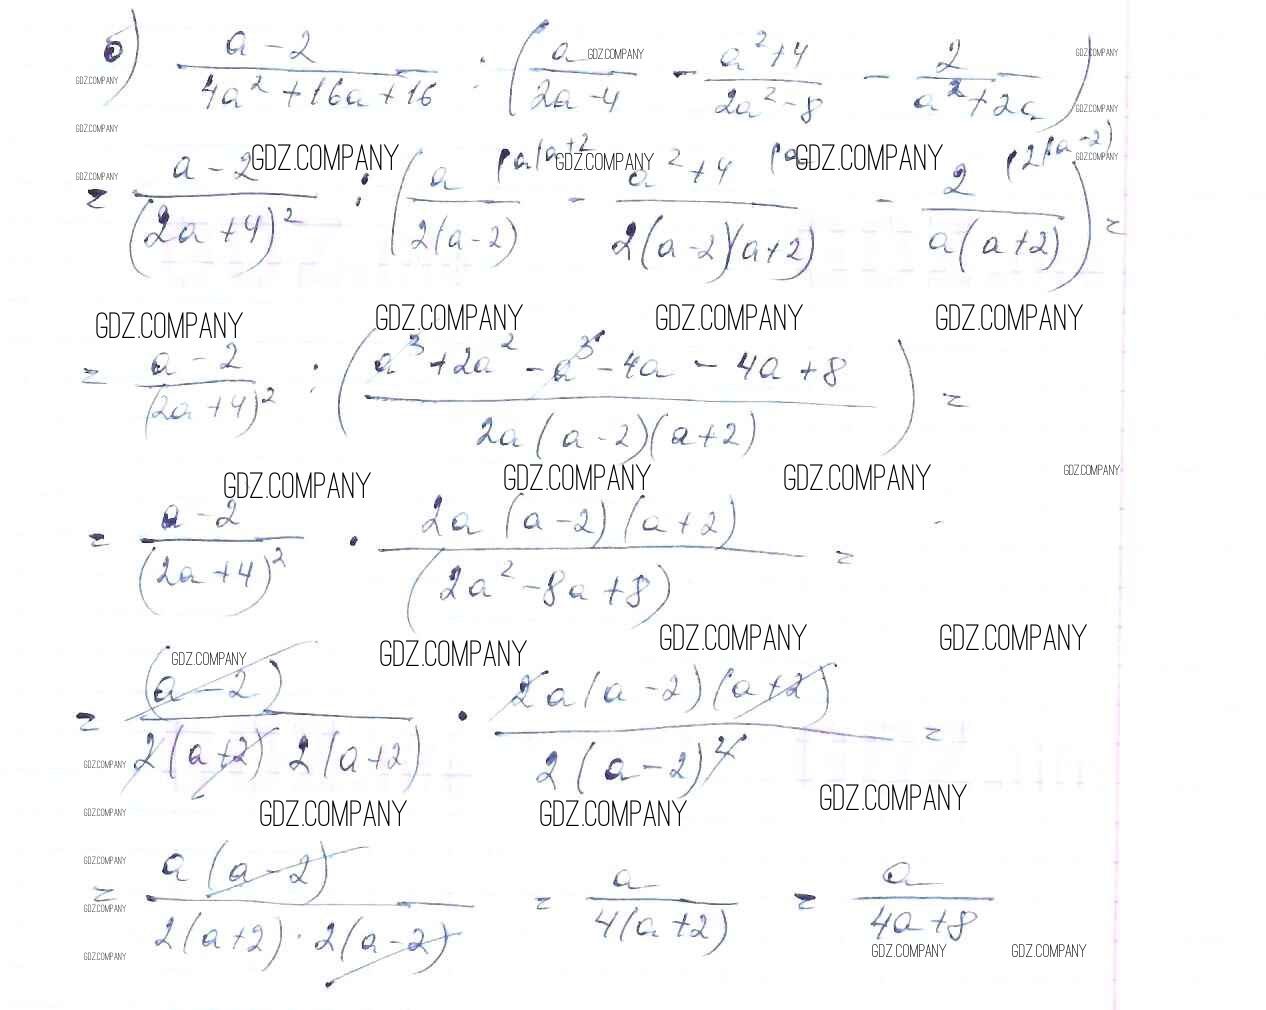 б) (a - 2)/(4a² + 16a + 16) : (a/(2a - 4) - (a² + 4)/(2a² - 8) - 2/(a² + 2a))
= (a - 2)/(2a + 4)² : (a/(2(a - 2)) - (a² + 4)/(2(a - 2)(a + 2)) - 2/(a(a + 2))) =
= (a - 2)/(2a + 4)² : ((a³ + 2a² - a³ - 4a - 4a + 8)/(2a(a - 2)(a + 2))) =
= (a - 2)/(2a + 4)² · (2a(a - 2)(a + 2))/(2a² - 8a + 8) =
= (a - 2)/(2(a + 2) 2(a + 2)) · (2a(a - 2)(a + 2))/(2(a - 2)²) =
= a(a - 2)/(2(a + 2) · 2(a - 2)) = a/(4(a + 2)) = a/(4a + 8)
GDZ.COMPANY